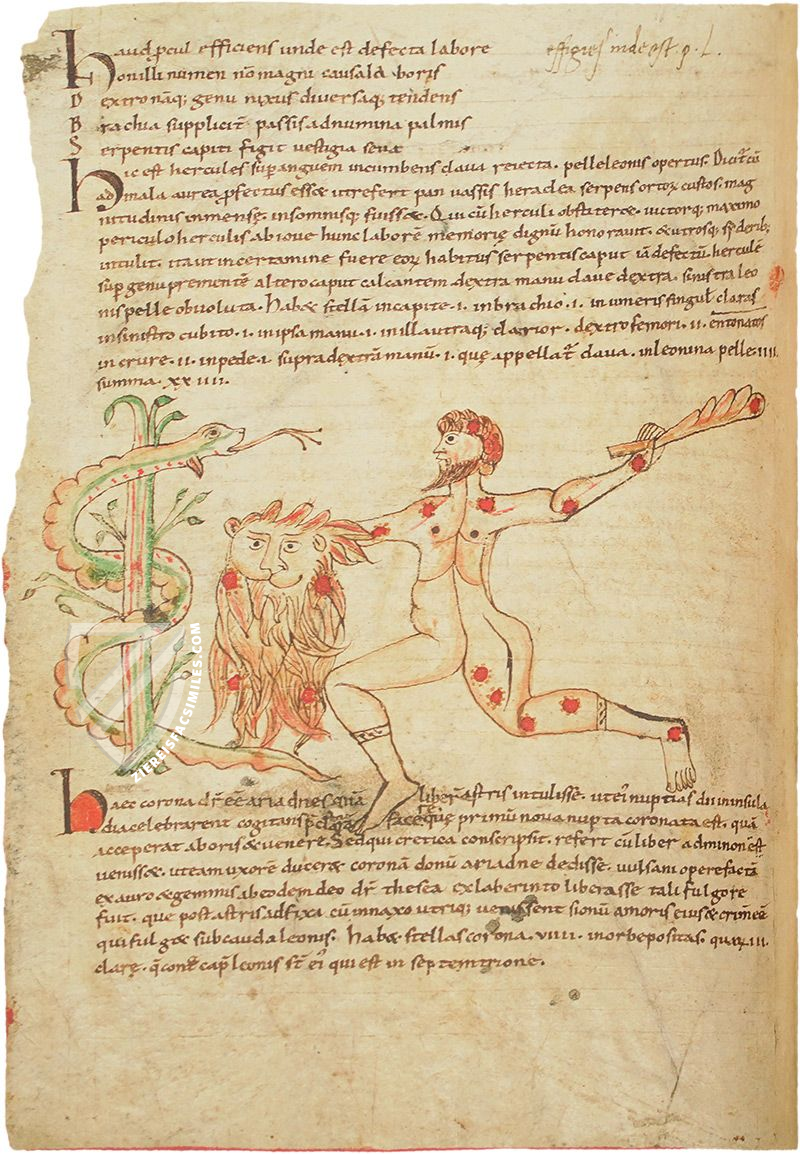 haud pcul efficiens unde est defecta labore
effigies inde est q. L.
honilli numen nō magni causa laboris
Dextro nāq; genu nixus diversaq; tendens
Brachia suppliciē passis ad numina palmis
Serpentis capiti figit vestigia seva
hic est hercules sup anguem incumbens clava reiecta. pelle leonis opertus. Dicit cū
ad mala aurea pfectus esse ut refert pan vassis heraclea serpens ortoꝝ custos. mag
nitudinis inmense. insomnisq; fuisse. Qui cū herculi obstiteret. victorq; maximo
periculo herculis ab iove hunc laborē memorię dignū honoravit. & utrosq; siderib;
intulit. ita ut in certamine fuere eoꝝ habitus serpentis caput iā defectū. herculē
sup genu premente altero caput calcantem dextra manu clave dextra. sinistra leo
nis pelle obvoluta. habet stellā in capite .i. in brachio .i. in umeris singul claras
in sinistro cubito .i. in ipsa manu .i. in illa utraq; clarior. dextro femori .ii. entonatos
in crure .ii. in pede .i. supra dextrā manū .i. quę appellat clava. in leonina pelle .iiii.
summa. xx iiii.
ZIEREISFACSIMILES.COM
haec corona dr eē ariadnes quā liber astris intulisse. ut ei nuptias dn in insula
dia celebrarent cogitans facere quę primū nova nupta coronata est. quā
acceperat ab oris & venere. Sed qui cretica conscripsit. refert cū liber ad minonē
venisset. ut eam uxorē duceret coronam donū ariadne dedisse. vulcani opere factā
ex auro & gemmis ab eodem deo dr thesea ex laberinto liberasse tali fulgore
fuit. que post astris adfixa cū in naxo utriq; venissent signū amoris eius & crinē
qui fulget sub cauda leonis. habet stellas corona .viiii. in orbe positas. quaꝝ .iii.
clarę. q̄ cont cap leonis st ei qui est in septemtrione.